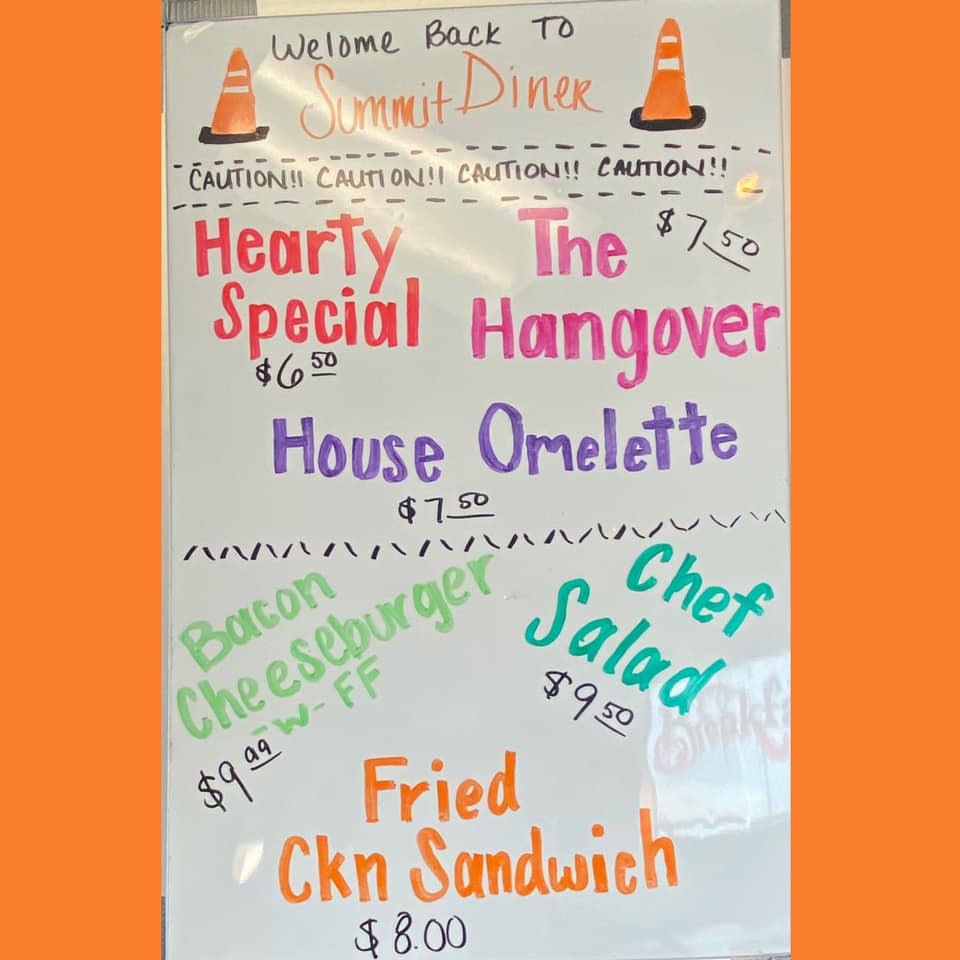 Welome Back To
Summit Diner
CAUTION!! CAUTION!! CAUTION!! CAUTION!!
Hearty
Special
$6 50
The
$7 50
Hangover
House Omelette
$7 50
Bacon
Cheeseburger
-w- FF
$9 99
Chef
Salad
$9 50
Fried
Ckn Sandwich
$8.00